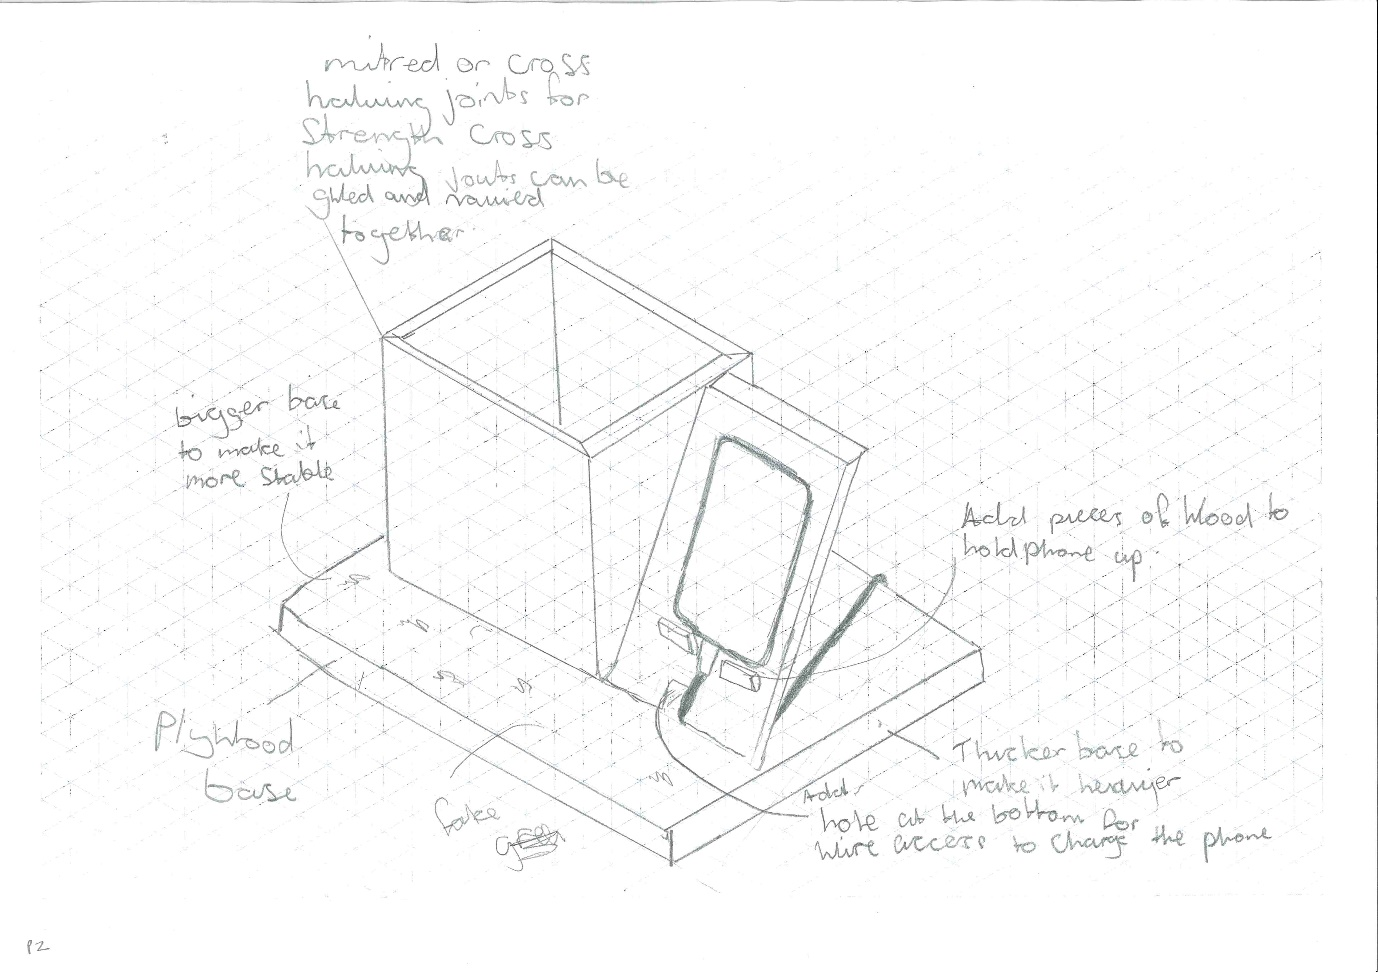 mitred or cross
halving joints for
Strength Cross
halving joints can be
glued and nailed
together
bigger base
to make it
more Stable
Add pieces of Wood to
hold phone up
Plywood
base
Thicker base to
make it heavyer
Add
hole at the bottom for
wire access to charge the phone
fake
P2